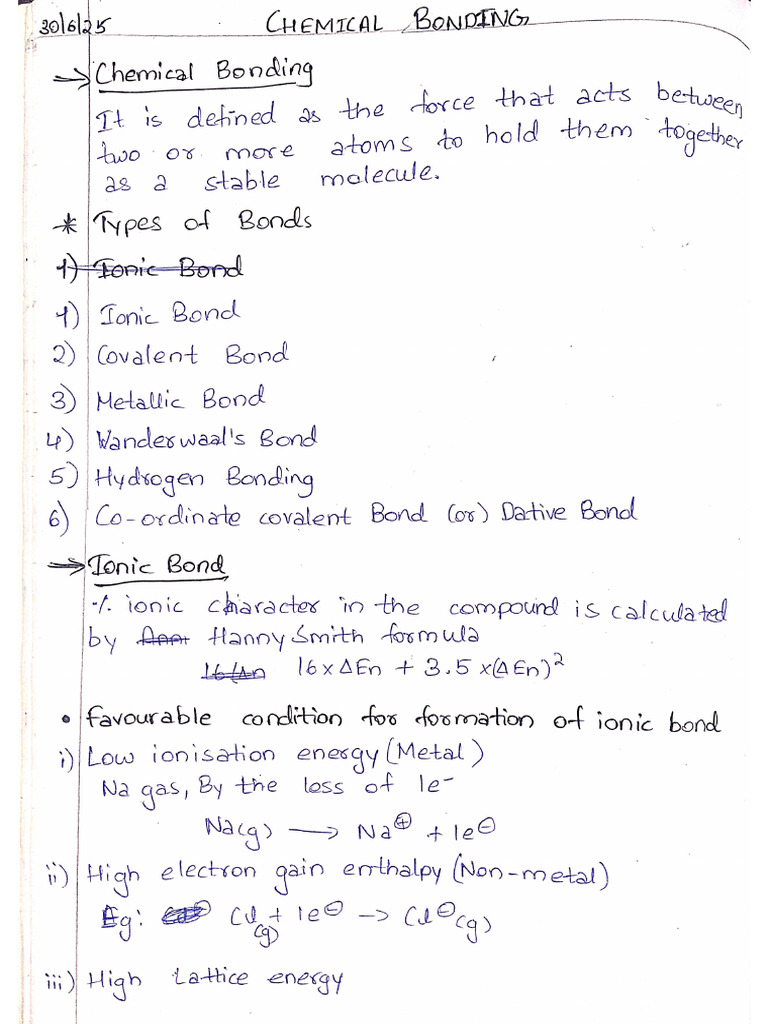 30/6/25 CHEMICAL BONDING
→ Chemical Bonding
It is defined as the force that acts between
two or more atoms to hold them together
as a stable molecule.
* Types of Bonds
1) Ionic Bond
1) Ionic Bond
2) Covalent Bond
3) Metallic Bond
4) Wanderwaal's Bond
5) Hydrogen Bonding
6) Co-ordinate covalent Bond (or) Dative Bond
→ Ionic Bond
% ionic character in the compound is calculated
by Hanny Smith formula
16×ΔEn + 3.5 ×(ΔEn)²
• favourable condition for formation of ionic bond
i) Low ionisation energy (Metal)
Na gas, By the loss of 1e⁻
Na(g) → Na⊕ + 1e⊖
ii) High electron gain enthalpy (Non-metal)
Eg: Cl(g) + 1e⊖ → Cl⊖(g)
iii) High Lattice energy